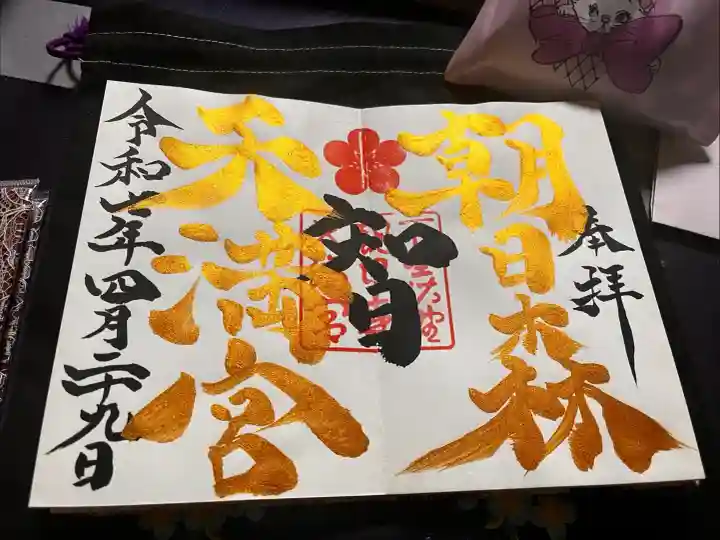 奉拝
朝日森
天満宮
智
令和七年四月二十九日